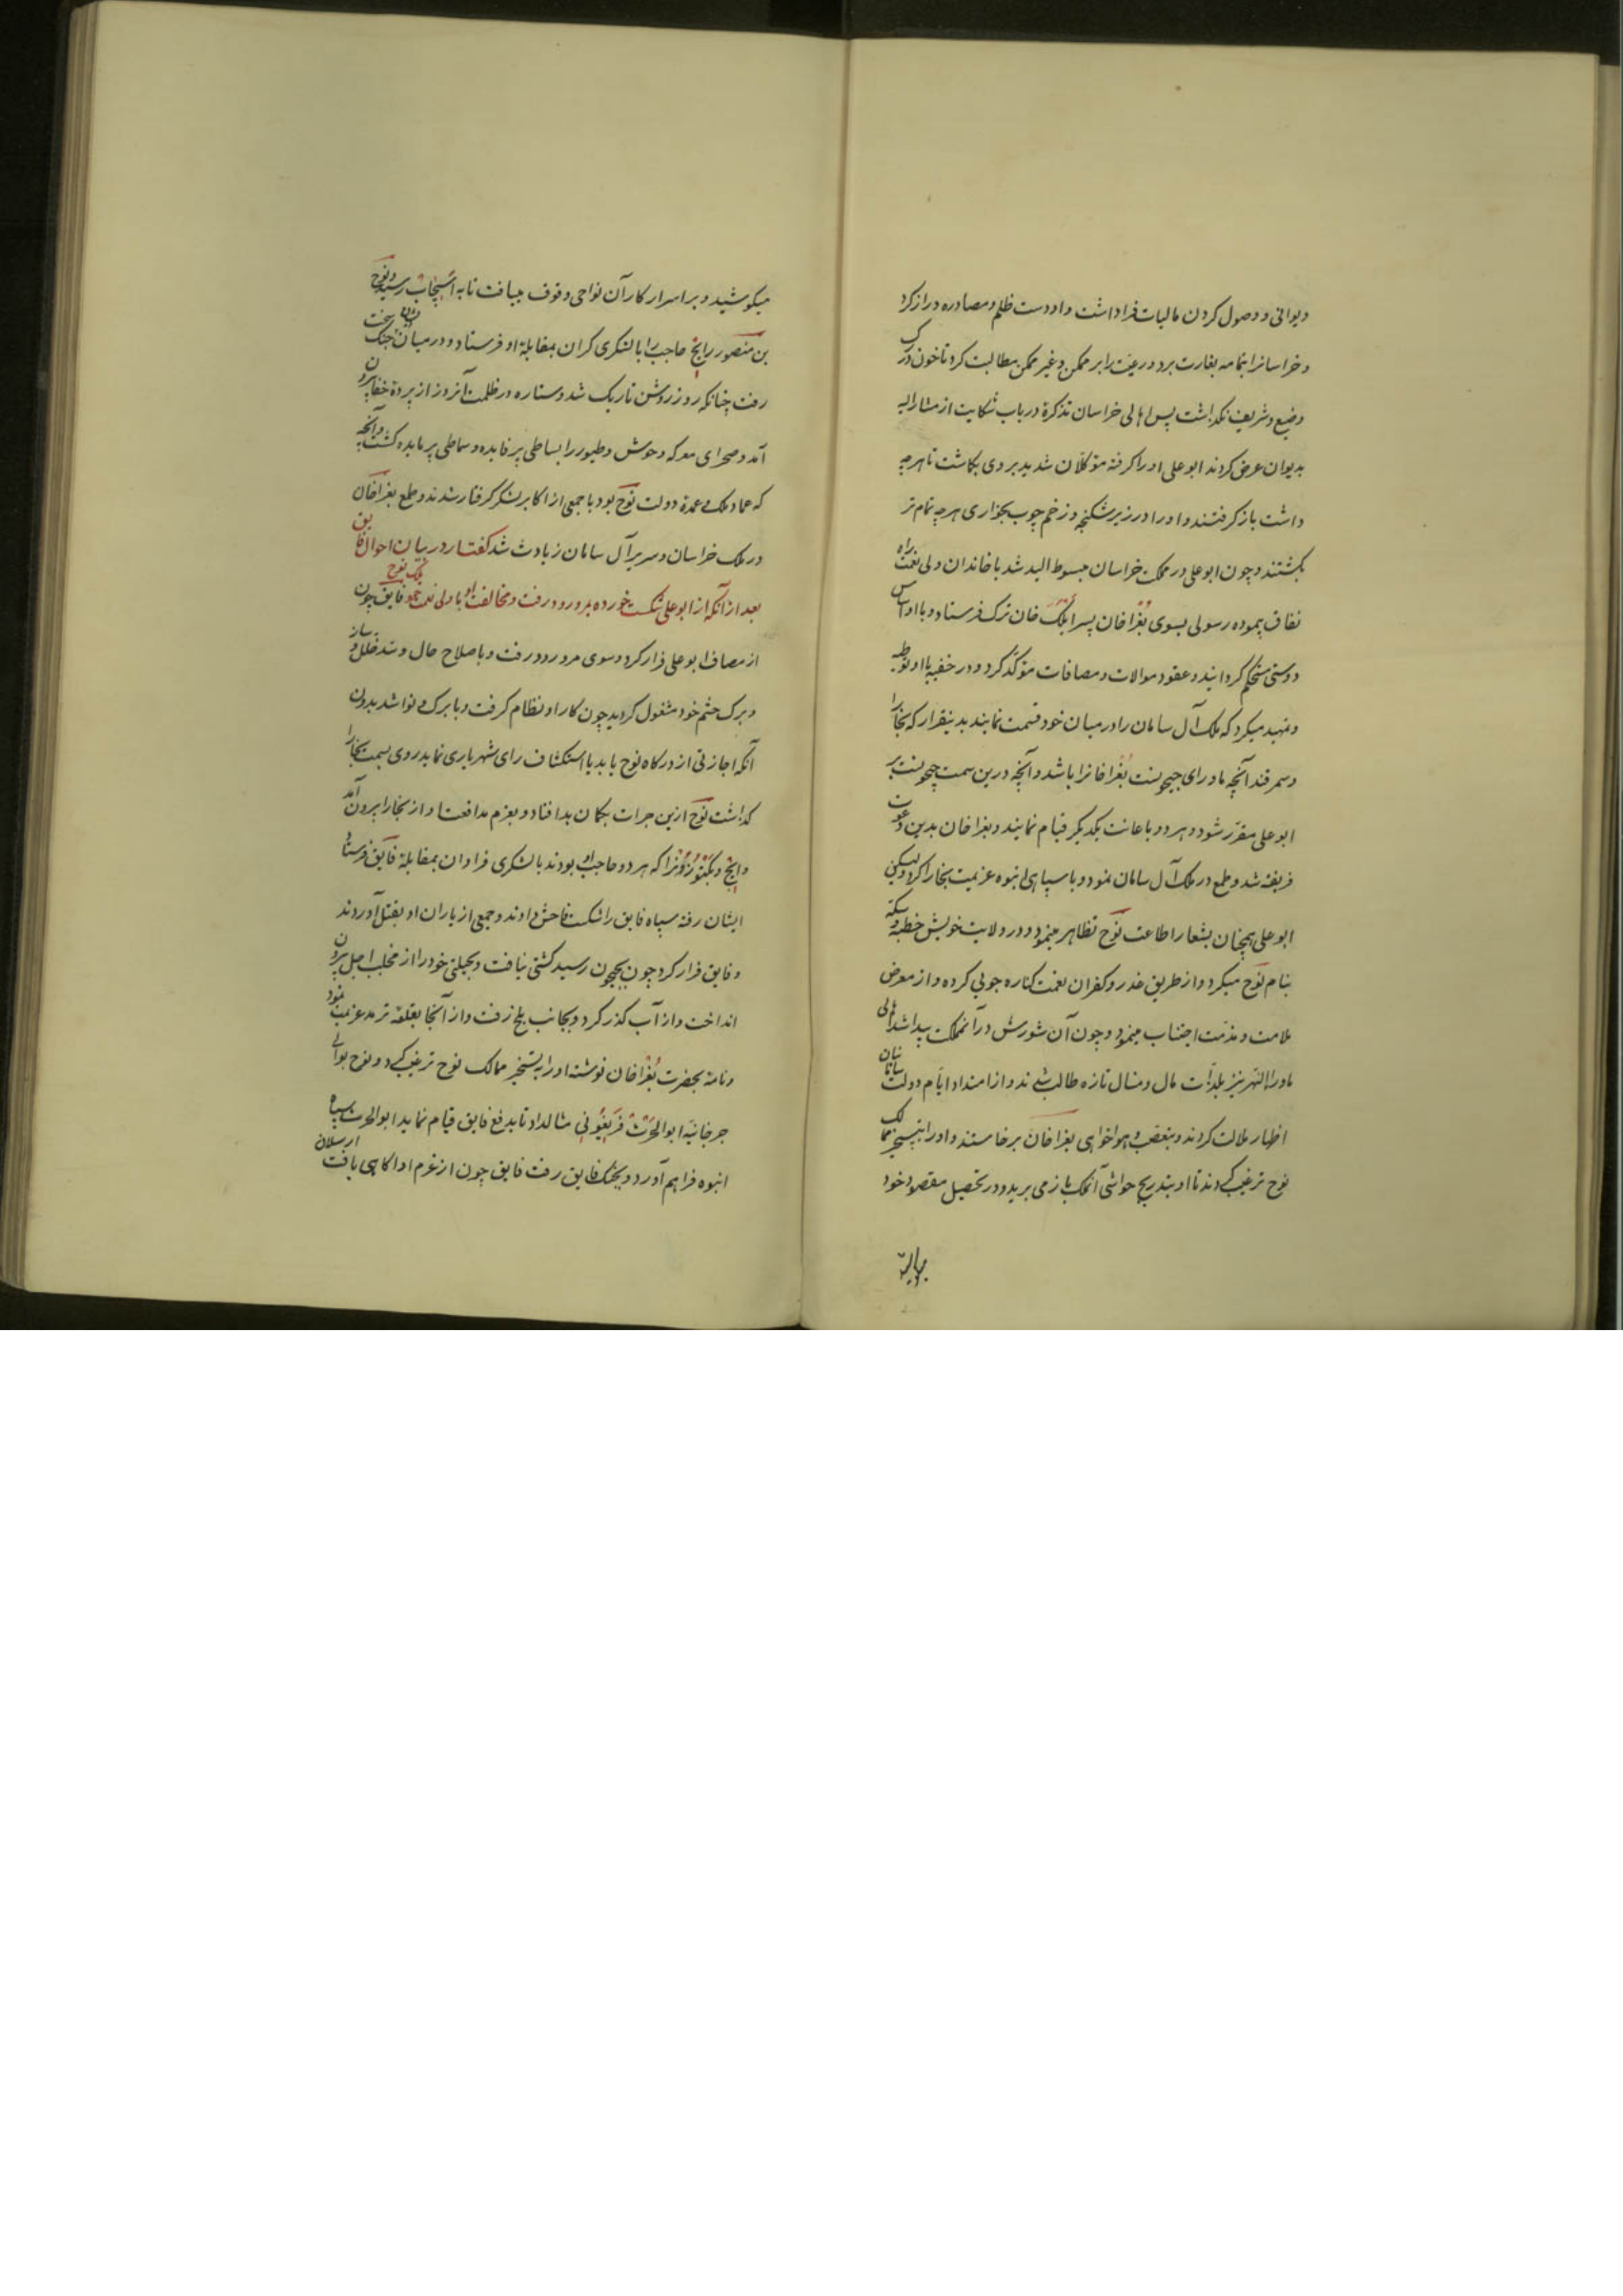 دیوانی و وصول کردن مالیات فرا داشت و او دست ظلم و مصادره دراز کرد
و خراسانرا بتمامه بغارت برد و رعیت را بر ممکن و غیر ممکن مطالبت کرد تا خون در رک
وضیع و شریف نکذاشت پس اهالی خراسان تذکرة در باب شکایت از مشار الیه
بدیوان عرض کردند ابو علی او را کرفته موکلان شدید بر وی بکاشت تا هرچه
داشت باز کرفتند و او را در زیر شکنجه و زخم چوب بخواری هرچه تمام تر
بکشتند و چون ابو علی در مملکت خراسان مبسوط الید شد با خاندان ولی نعمت راه
نفاق پیموده رسولی بسوی بغرا خان پسر ایلک خان ترک فرستاد و با او اساس
دوستی مستحکم کردانید و عقود موالات و مصافات موکد کرد و در خفیه با او توطیه
و تمهید میکرد که ملک آل سامان را در میان خود قسمت نمایند بدینقرار که بخارا
و سمرقند آنچه ماورای جیحونست بغرا خانرا باشد و آنچه درین سمت جیحونست بر
ابو علی مقرر شود و هر دو باعانت یکدیکر قیام نمایند و بغرا خان بدین دعوت
فریفته شد و طمع در ملک آل سامان نمود و با سپاهی انبوه عزیمت بخارا کرد و لیکن
ابو علی همچنان بشعار اطاعت نوح تظاهر مینمود و در ولایت خویش خطبه و سکه
بنام نوح میکرد و از طریق غدر و کفران نعمت کناره جوئی کرده و از معرض
ملامت و مذمت اجتناب مینمود و چون آن شورش در آن مملکت پیدا شد اهالی
ماوراء النهر نیز بلذات مال و منال تازه طالب شدند و از امتداد ایام دولت سامانیان
اظهار ملالت کردند و بتعصب و هواخواهی بغرا خان برخاستند و او را بتسخیر ممالک
نوح ترغیب کردند تا او بتدریج حواشی آنملک باز می برید و در تحصیل مقصود خود
میکوشید و بر اسرار کار آن نواحی وقوف مییافت تا به اسپیجاب رسید و نوح
بن منصور اینج حاجب را با لشکری کران بمقابلهٔ او فرستاد و در میان ایشان جنک سخت
رفت چنانکه روز روشن تاریک شد و ستاره در ظلمت آنروز از پردهٔ خفا بیرون
آمد و صحرای معرکه وحوش و طیور را بساطی پر فایده و سماطی پر مایده کشت و اینج
که عماد ملک و عمدة دولت نوح بود با جمعی از اکابر لشکر کرفتار شدند و طمع بغرا خان
در ملک خراسان و سریر آل سامان زیادت شد کفتار در بیان احوال فایق
بعد از آنکه از ابو علی شکست خورده بمرو رود رفت و مخالفت او با ولی نعمت خود ملک نوح فایق چون
از مصاف ابو علی فرار کرد و سوی مرو رود رفت و باصلاح حال و سد خلل و ساز
و برک حشم خود مشغول کردید چون کار او نظام کرفت و با برک و نوا شد بدون
آنکه اجازتی از درکاه نوح یابد یا استکشاف رای شهریاری نماید روی بسمت بخارا
کذاشت نوح ازین جرات بکمان بد افتاد و بعزم مدافعت او از بخارا بیرون آمد
و اینج و بکتوزون را که هر دو حاجب او بودند با لشکری فراوان بمقابلهٔ فایق فرستاد
ایشان رفته سپاه فایق را شکست فاحش دادند و جمعی از یاران او بقتل آوردند
و فایق فرار کرد چون بجیحون رسید کشتی نیافت و بحیلتی خود را از مخلب اجل بیرون
انداخت و از آب کذر کرد و بجانب بلخ رفت و از آنجا بقلعهٔ ترمد عزیمت نمود
و نامهٔ بحضرت بغرا خان نوشته او را بتسخیر ممالک نوح ترغیب کرد و نوح بوالی
جرجانیه ابو الحرث فریغونی مثال داد تا بدفع فایق قیام نماید ابو الحرث سپاه
انبوه فراهم آورد و بجنک فایق رفت فایق چون از عزم او اکاهی یافت ارسلان